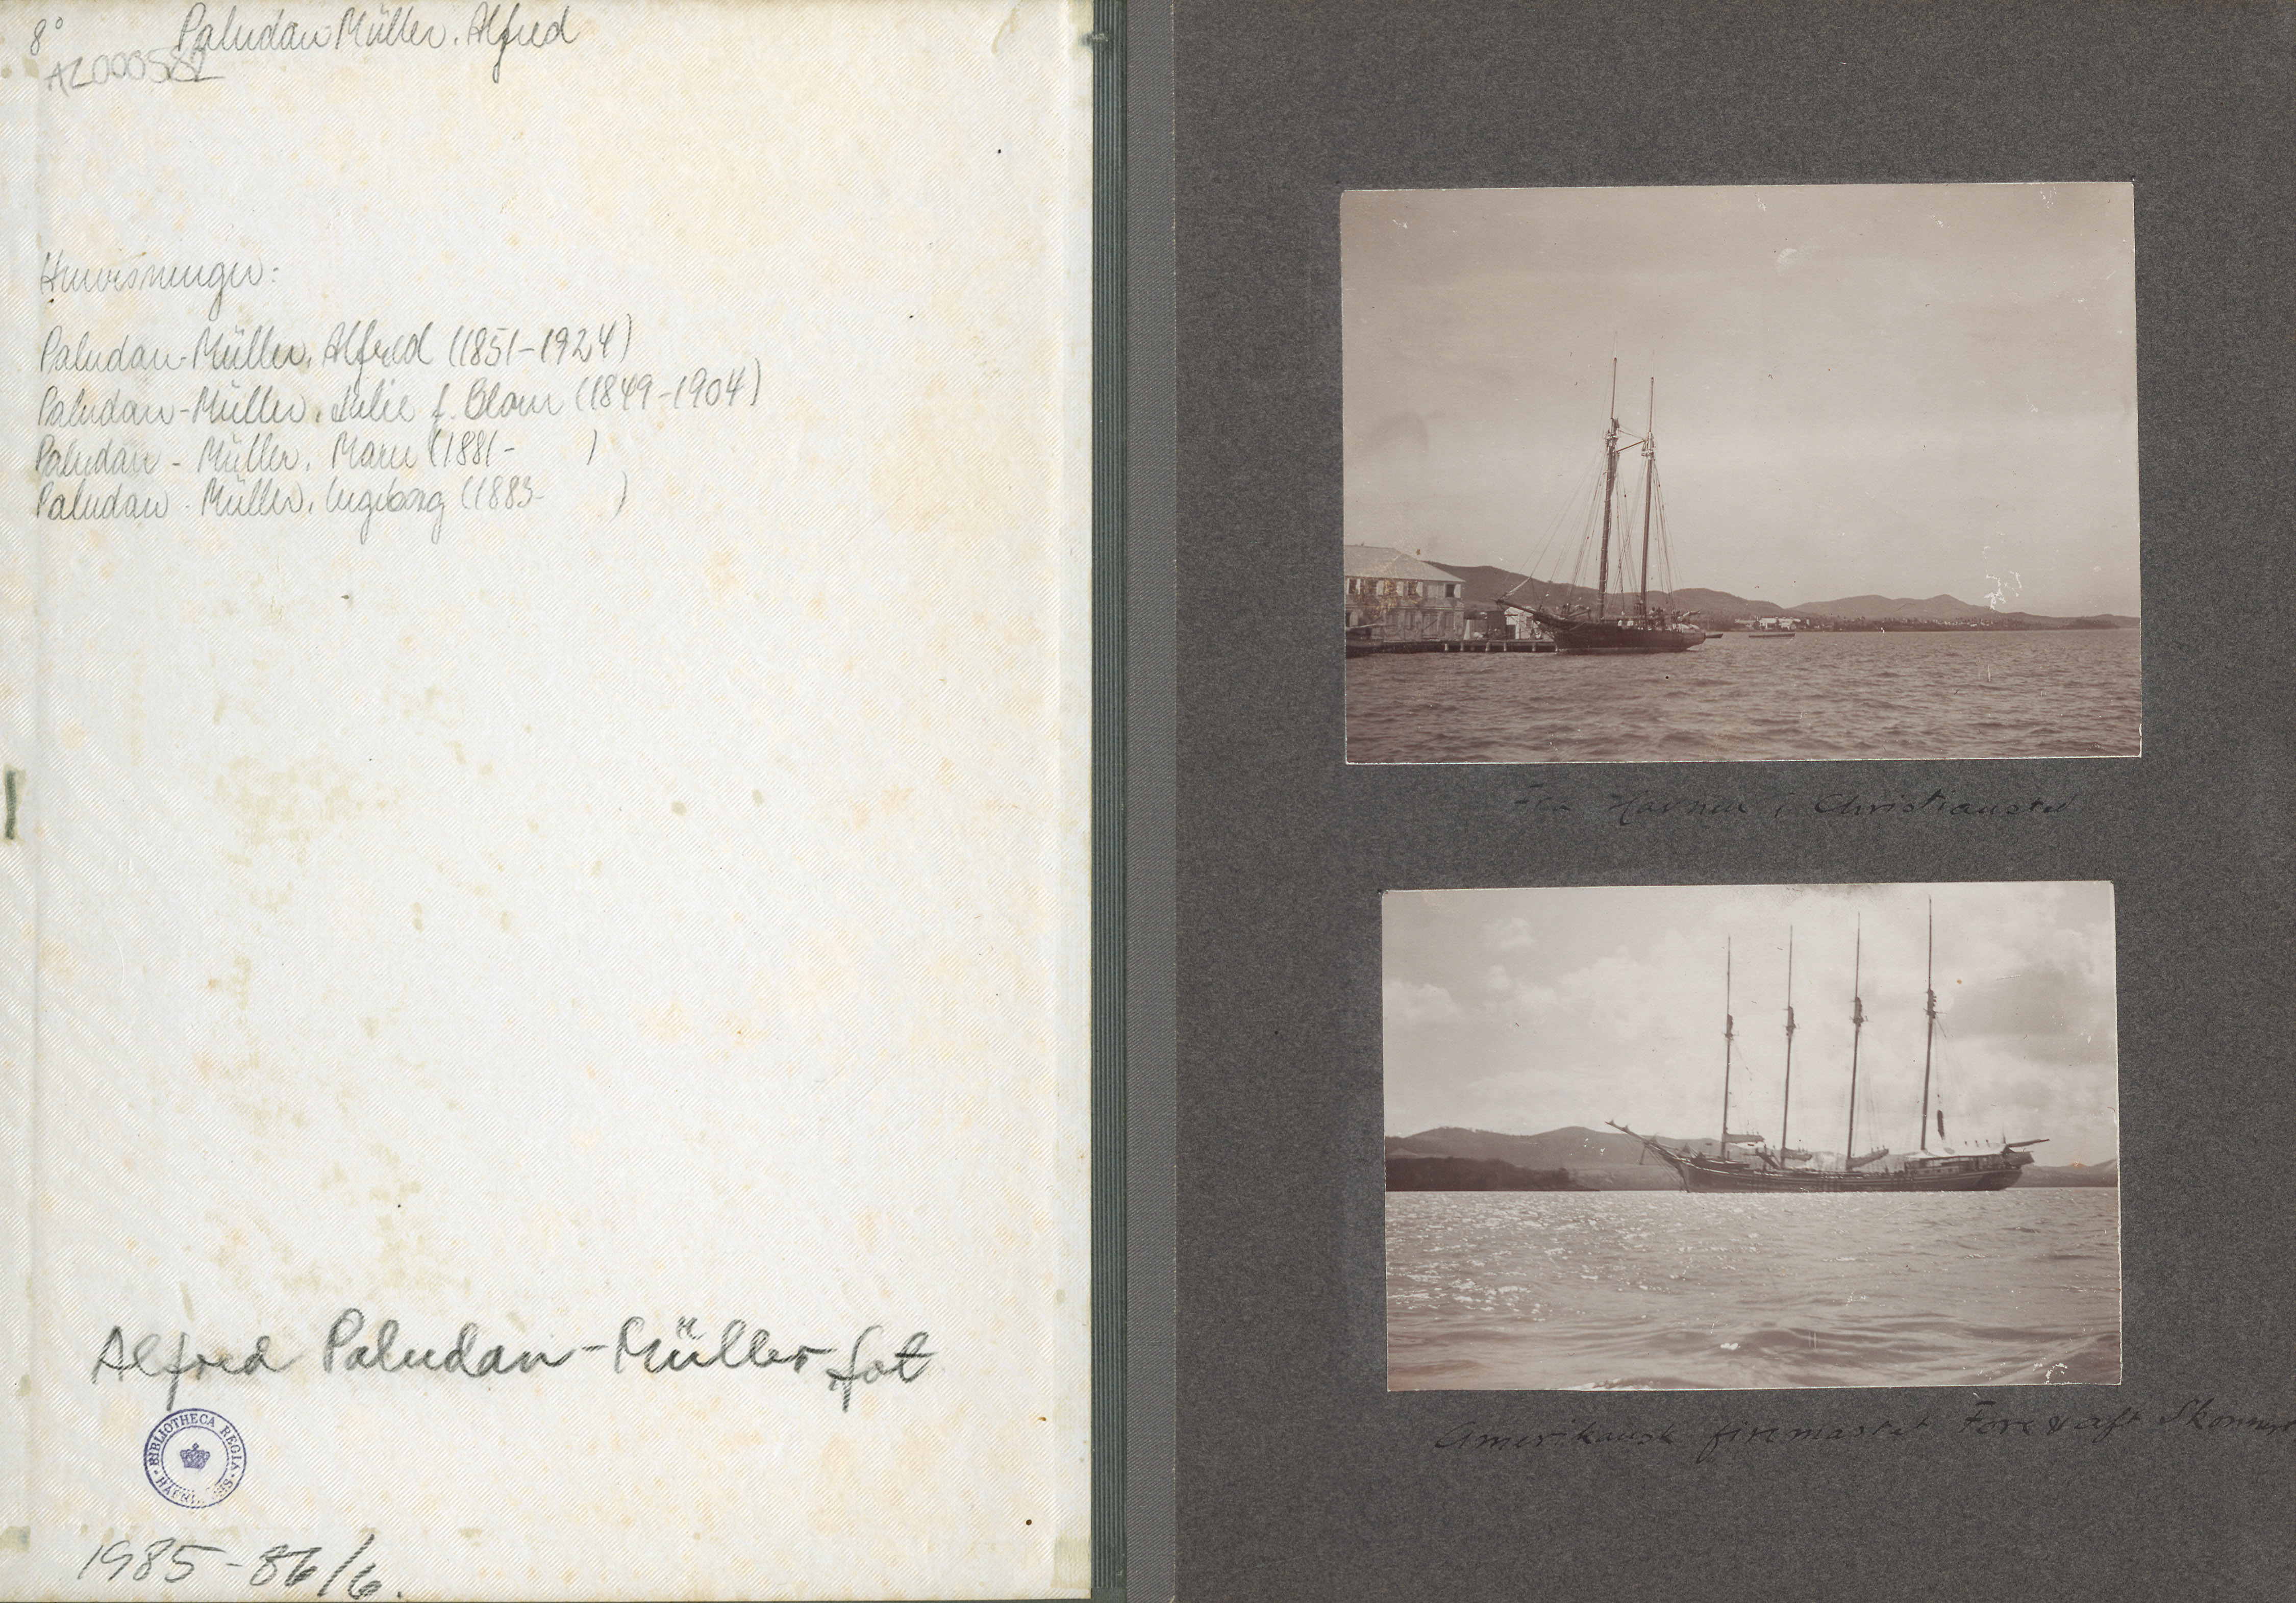 8° Paludan Müller. Alfred
AL000582
Henvisninger:
Paludan-Müller, Alfred (1851-1924)
Paludan-Müller, Julie f. Blom (1849-1904)
Paludan-Müller, Marie (1881- )
Paludan-Müller, Ingeborg (1883- )
Alfred Paludan-Müller fot
BIBLIOTHECA REGIA HAFNIENSIS
1985-86/6.
Fra Havnen i Christiansted
Amerikansk firemastet Fore & aft Skonnert